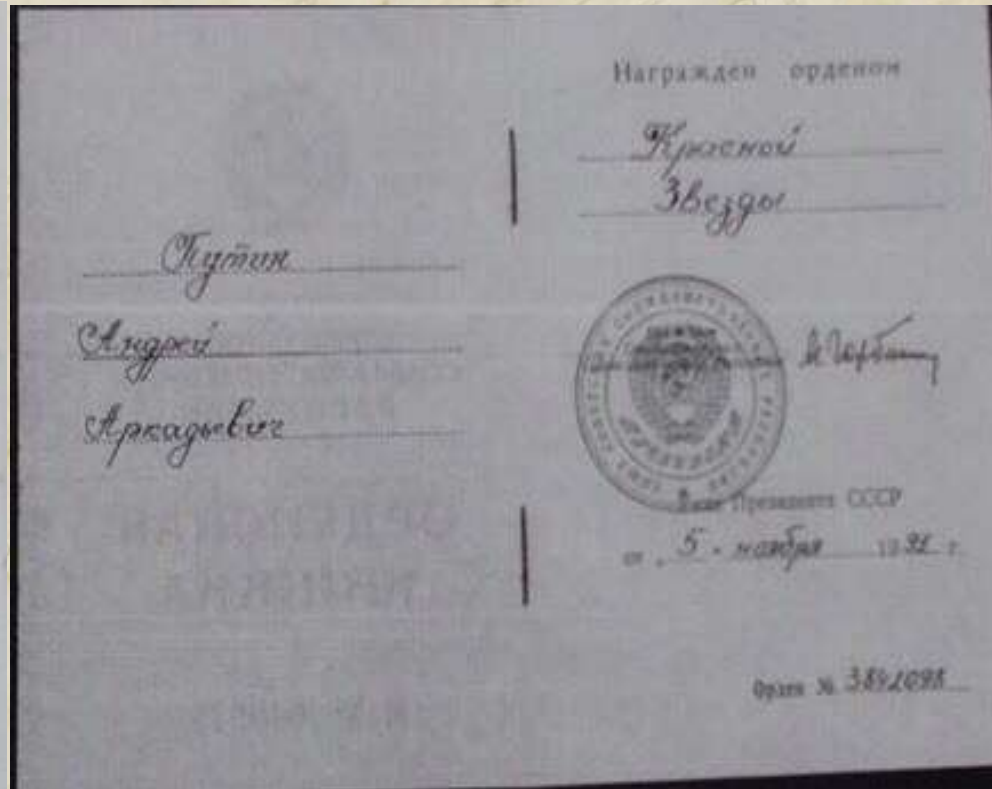 Путин
Андрей
Аркадьевич
Награжден орденом
Красной
Звезды
Указ Президента СССР
от „5“ ноября 1991 г.
Орден № 3892098